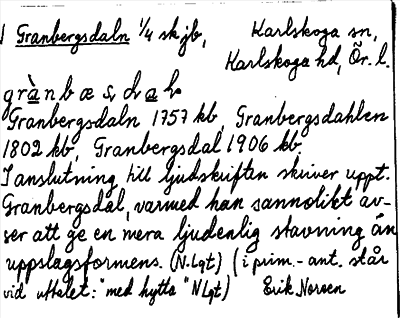 1 Granbergsdaln 1/4 sk jb, Karlskoga sn,
Karlskoga hd, Ör. l.
grànbæsdal
Granbergsdaln 1757 kb, Granbergsdahlen
1802 kb, Granbergsdal 1906 kb.
I anslutning till ljudskriften skriver uppt.
Granbergsdal, varmed han sannolikt av-
ser att ge en mera ljudenlig stavning än
uppslagsformens. (N. Lgt) (i prim.-ant. står
vid uttalet: "med hytta" N Lgt) Erik Noreen